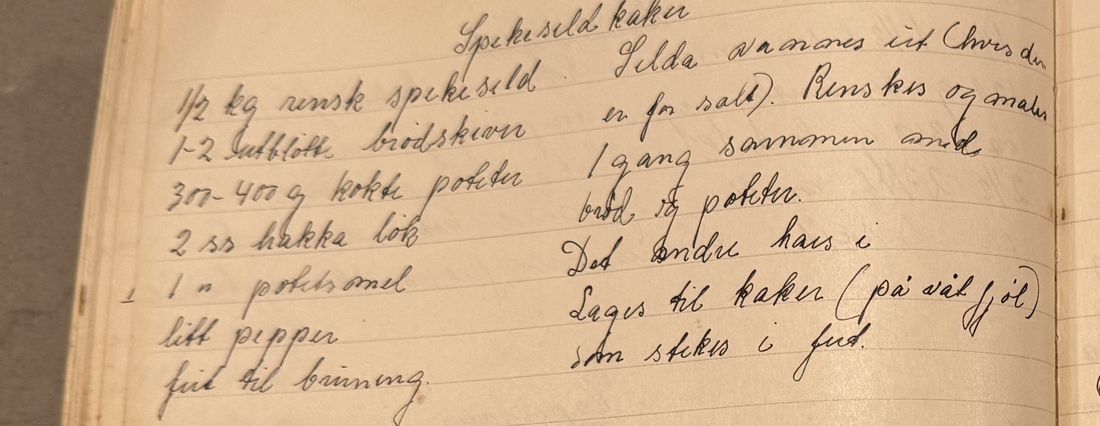 Spekesildkaker
1/2 kg rensk spekesild
1-2 utbløtte brødskiver
300-400 g kokte poteter
2 ss hakka løk
1 " potetmel
litt pepper
fett til bruning.
Silda vannes ut (hvis den
er for salt). Renskes og males
1 gang sammen med
brød og poteter.
Det andre haes i
Lages til kaker (på våt fjøl)
som stekes i fett.